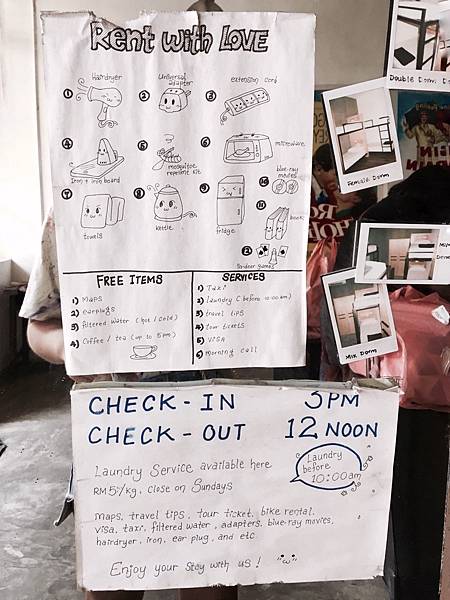 Rent with LOVE
① hairdryer
② Universal adapter
③ extension cord
④ Iron + iron board
⑤ mosquitoe repellent kit
⑥ microwave
⑦ towels
⑧ kettle
⑨ fridge
⑩ blue-ray movies
⑪ book
⑫ indoor games
FREE ITEMS
1) Maps
2) earplugs
3) filtered water (hot / cold)
4) Coffee / tea (up to 5pm)
SERVICES
1) Taxi
2) laundry (before 10:00am)
3) travel tips
4) tour tickets
5) VISA
6) morning call
CHECK-IN 3PM
CHECK-OUT 12 NOON
Laundry Service available here
RM5/kg, close on Sundays
Laundry
before
10:00am
maps, travel tips, tour ticket, bike rental,
visa, taxi, filtered water, adapters, blue-ray movies,
hairdryer, iron, ear plug, and etc.
Enjoy your stay with us!
Double Dorm
Female Dorm
Mix Dorm